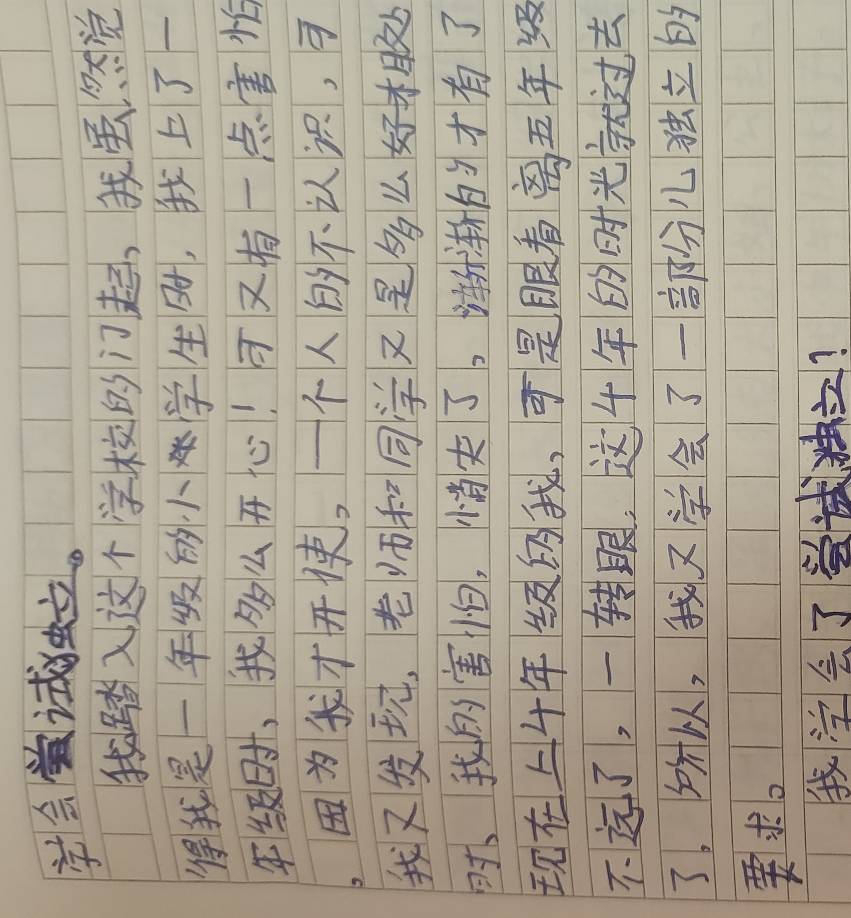 学会尝试独立。
我踏入这个学校的门起，我虽然觉
得我是一年级的小学生时，我上了一
年级时、我多么开心！可又有一点害怕
，因为我才开使，一个人的不认识，可
我又发现，老师和同学又是多么好相处
时、我的害怕，消失了，渐渐的才有了
现在上4年级的我、可是眼看离五年级
不远了，一转眼，这4年的时光就过去
了，所以，我又学会了一部分儿独立的
要求。
我学会了尝试独立！